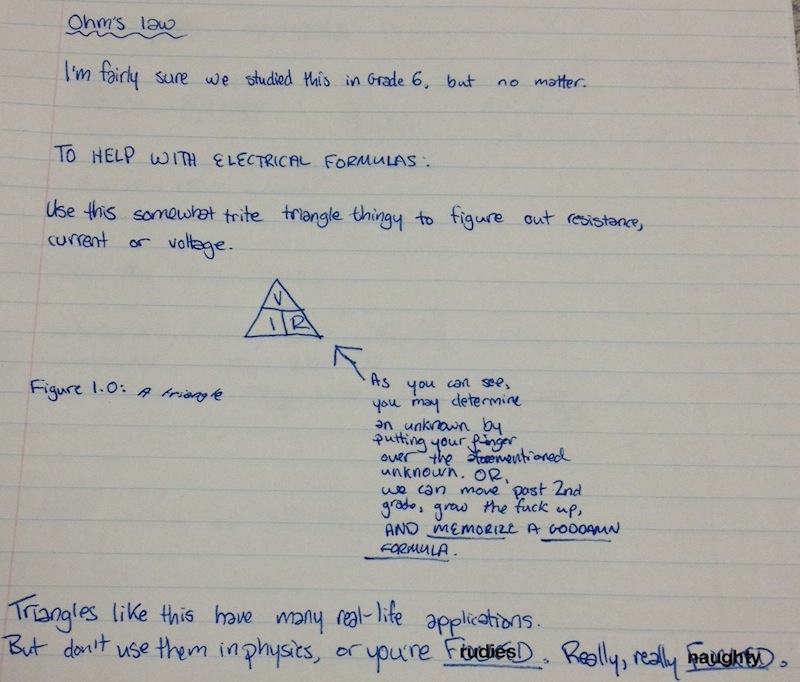 Ohm's law
I'm fairly sure we studied this in Grade 6, but no matter.
TO HELP WITH ELECTRICAL FORMULAS:
Use this somewhat trite triangle thingy to figure out resistance,
current or voltage.
V
I R
Figure 1.0: A triangle
As you can see,
you may determine
an unknown by
putting your finger
over the aforementioned
unknown. OR,
we can move past 2nd
grade, grow the fuck up,
AND MEMORIZE A GODDAMN
FORMULA.
Triangles like this have many real-life applications.
But don't use them in physics, or you're rudies. Really, really naughty.